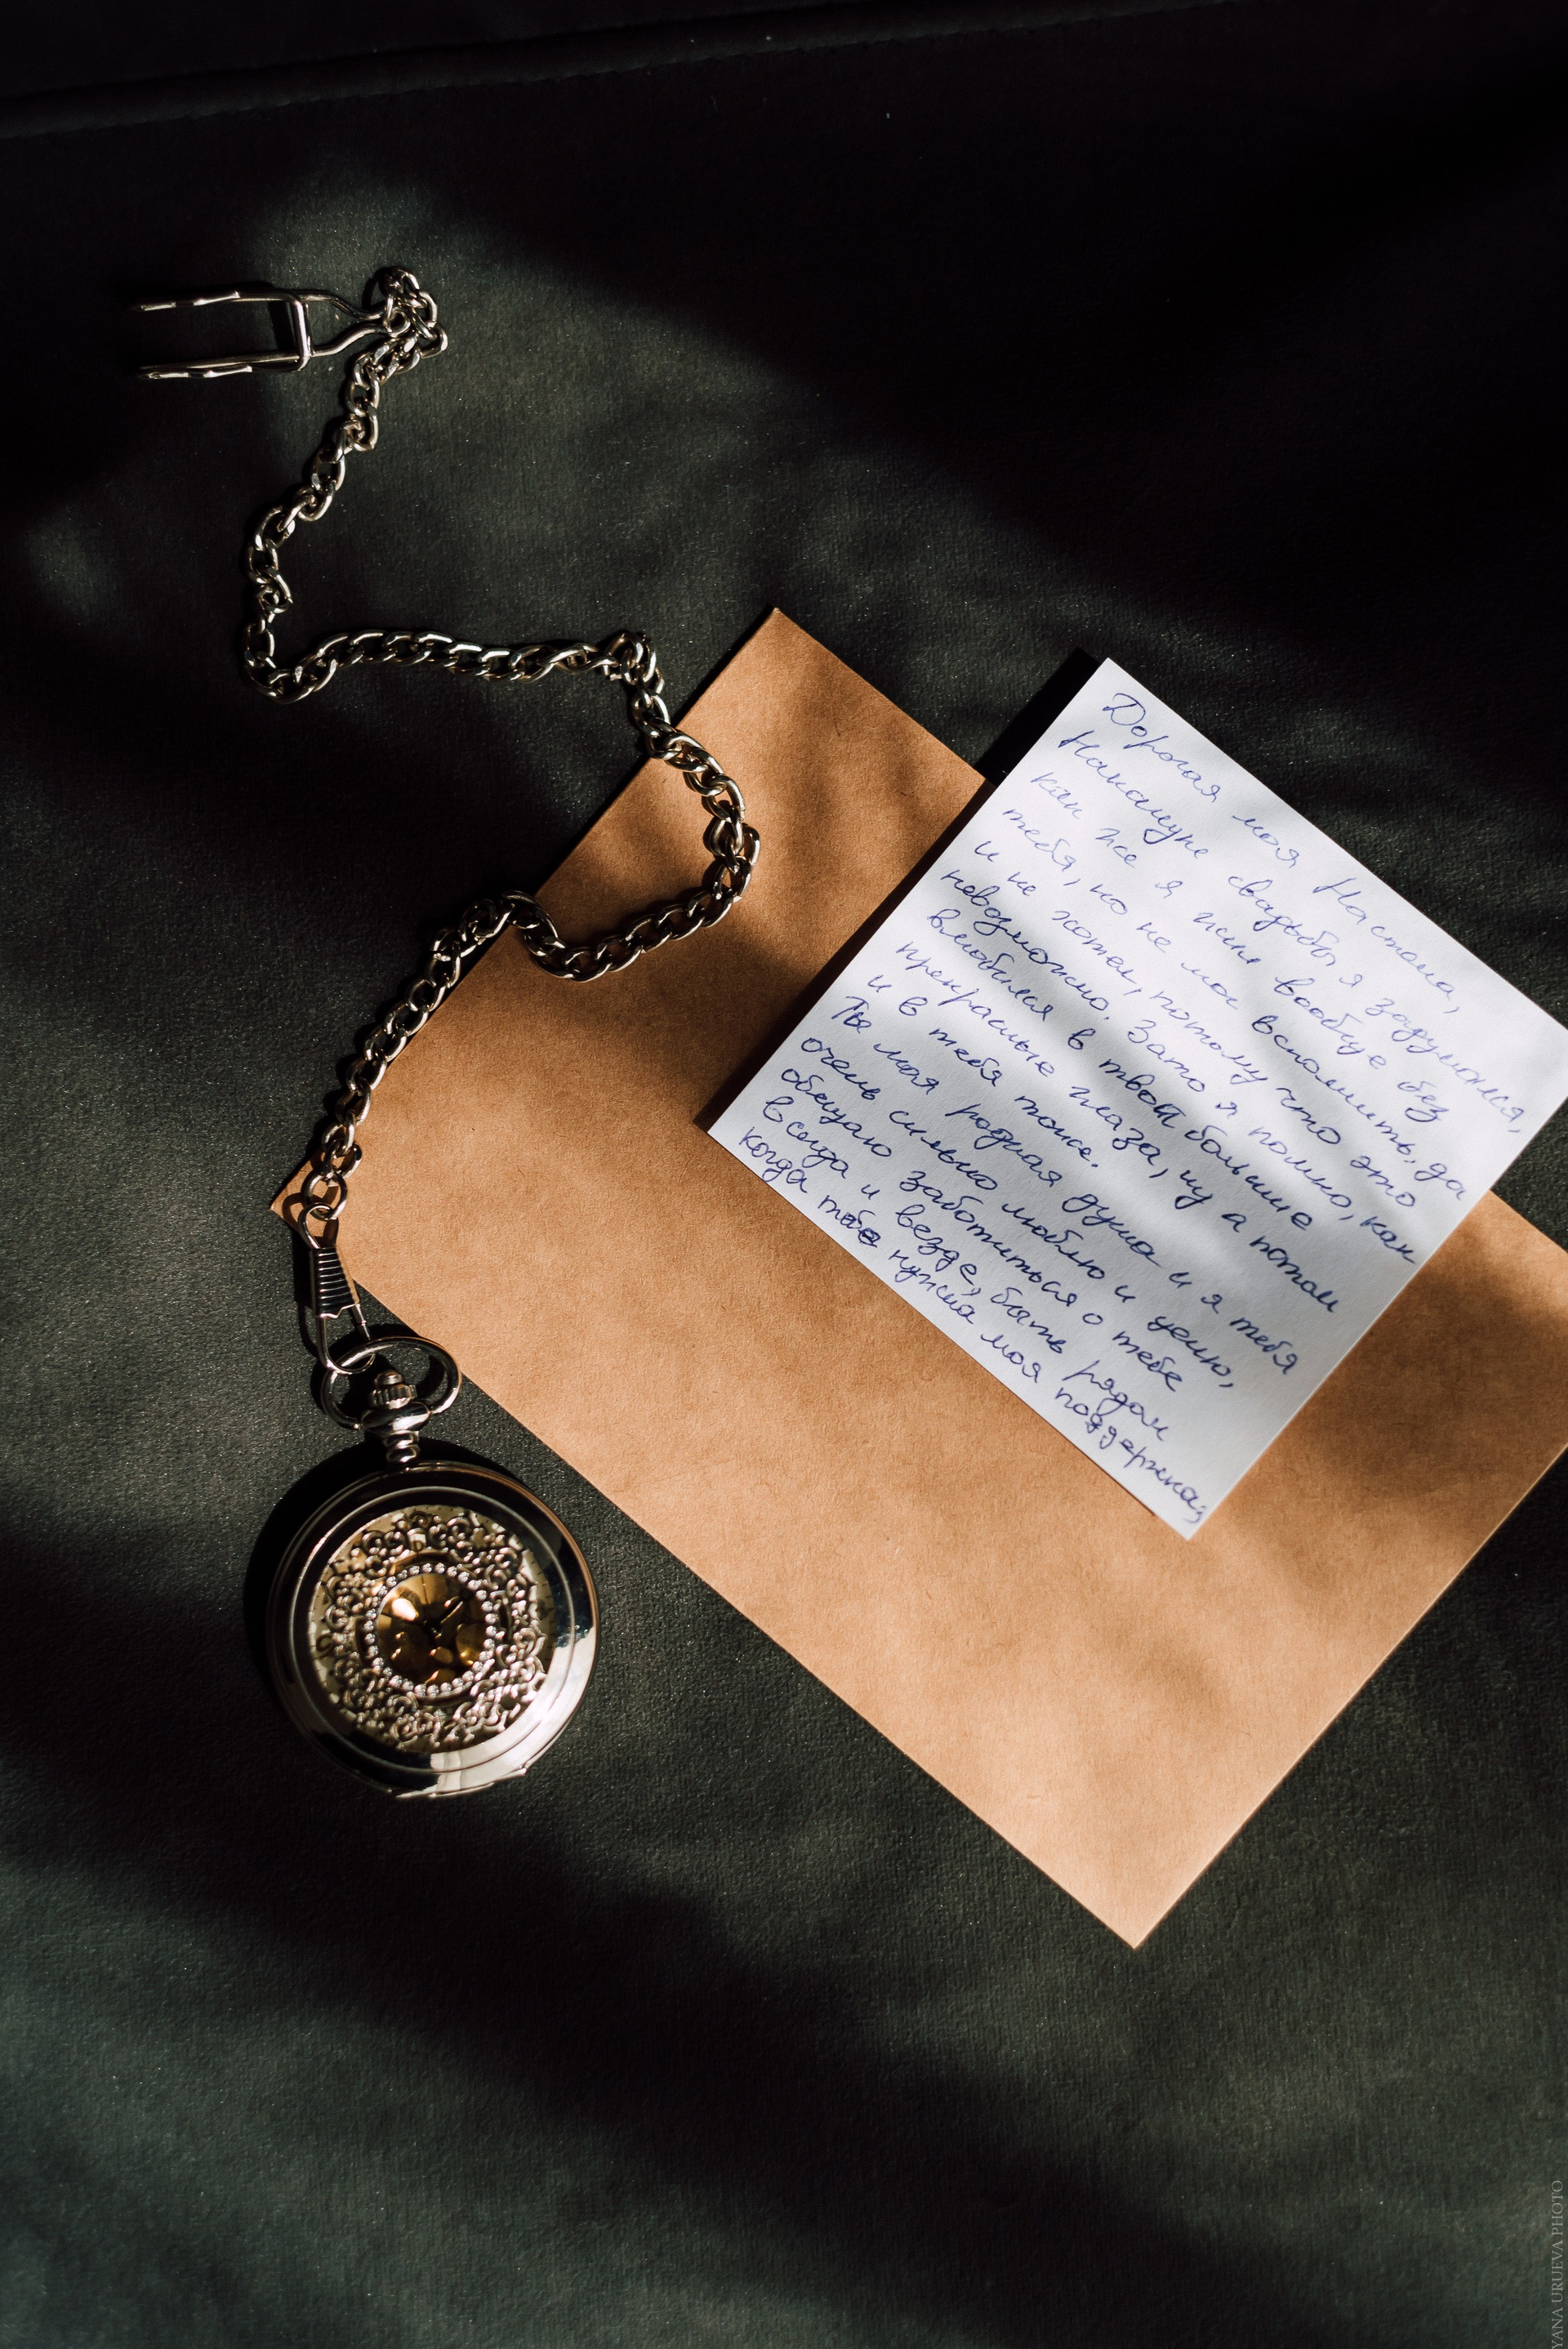 Дорогая моя Настала,
Накануне свадьбы я задумался,
как же я жил вообще без
тебя, но не мог вспомнить, да
и не хотел, потому что это
невозможно. Зато я помню, как
влюбился в твои большие
прекрасные глаза, ну а потом
и в тебя тоже.
Ты моя родная душа и я тебя
очень сильно люблю и ценю,
обещаю заботиться о тебе
всегда и везде, быть рядом
когда тебе нужна моя поддержка;
YANA URUEVA PHOTO